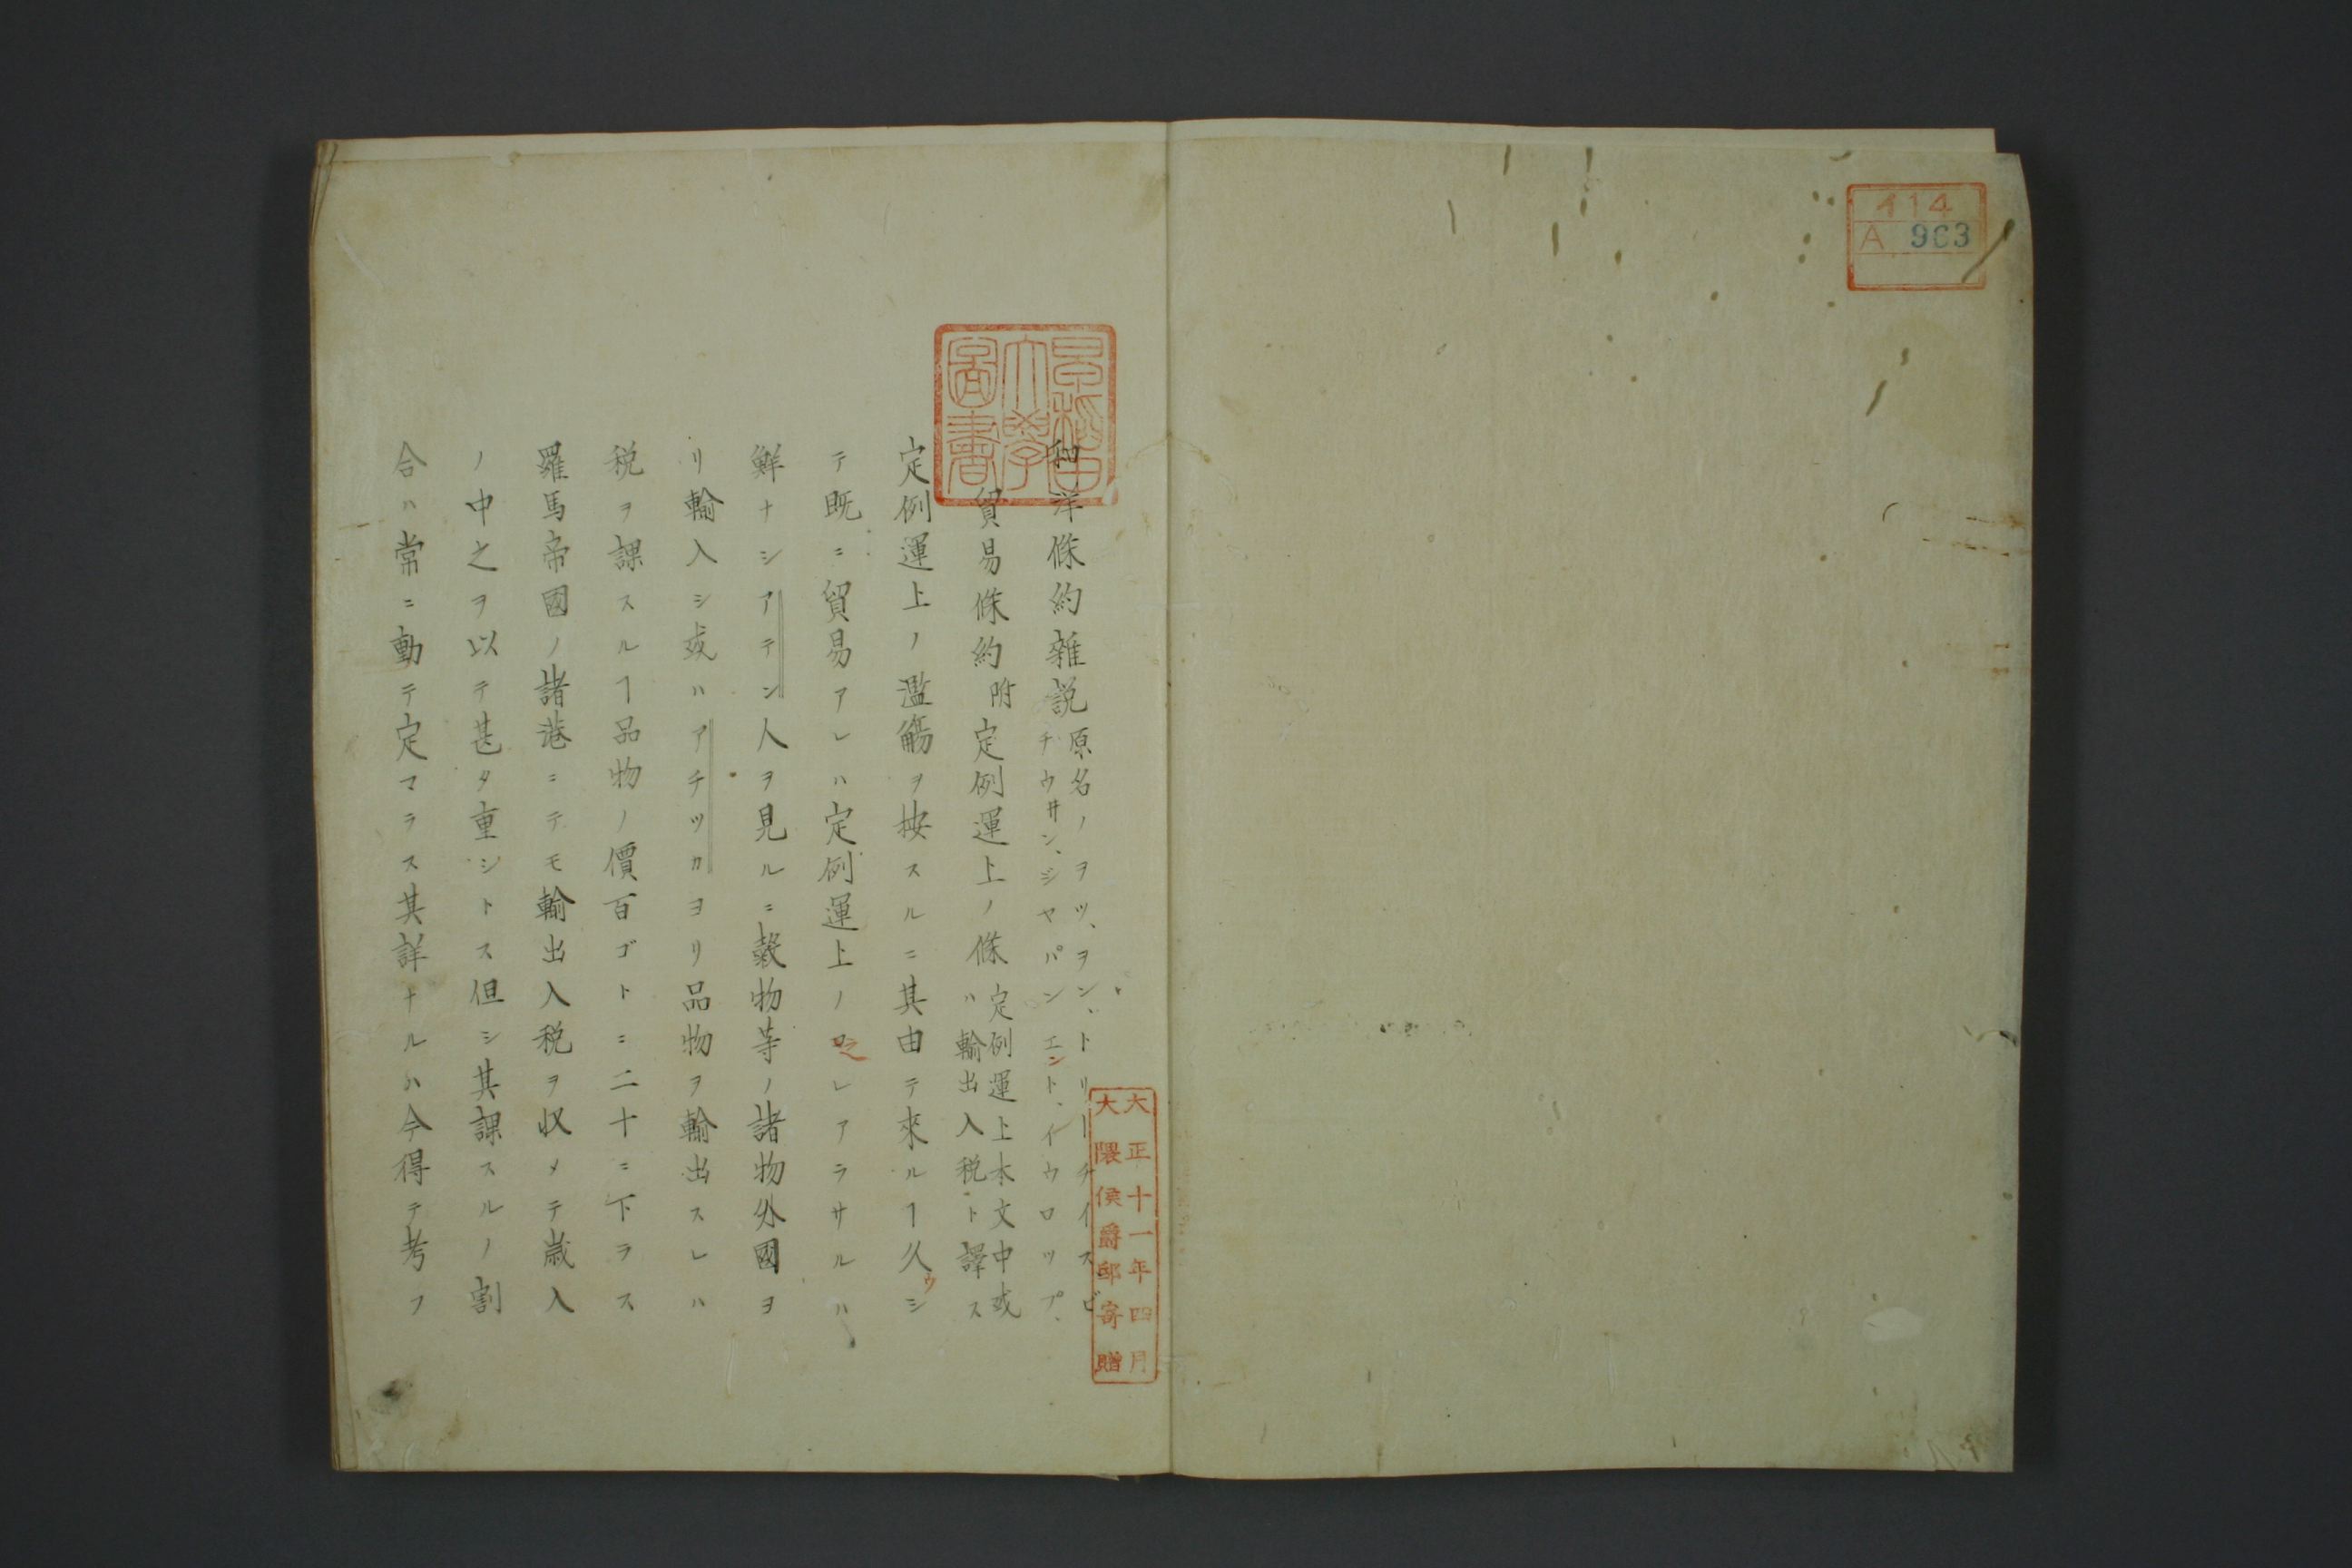 イ14
A 963
早稲田
大學
圖書
和洋條約雑説原名ノヲツ、ヲン、トリーチイスビ
チウ井ン、ジヤパンエント、イウロツプ、
貿易條約附定例運上ノ條定例運上本文中或
ハ輸出入税ト譯ス
定例運上ノ濫觴ヲ按スルニ其由テ來ルヿ久ウシ
テ既ニ貿易アレハ定例運上ノレアラサルハ
鮮ナシアテン人ヲ見ルニ穀物等ノ諸物外國ヨ
リ輸入シ或ハアチツカヨリ品物ヲ輸出スレハ
税ヲ課スルヿ品物ノ價百ゴトニ二十ニ下ラス
羅馬帝國ノ諸港ニテモ輸出入税ヲ収メテ歳入
ノ中之ヲ以テ甚タ重シトス但シ其課スルノ割
合ハ常ニ動テ定マラス其詳ナルハ今得テ考フ
大正十一年四月
大隈侯爵邸寄贈